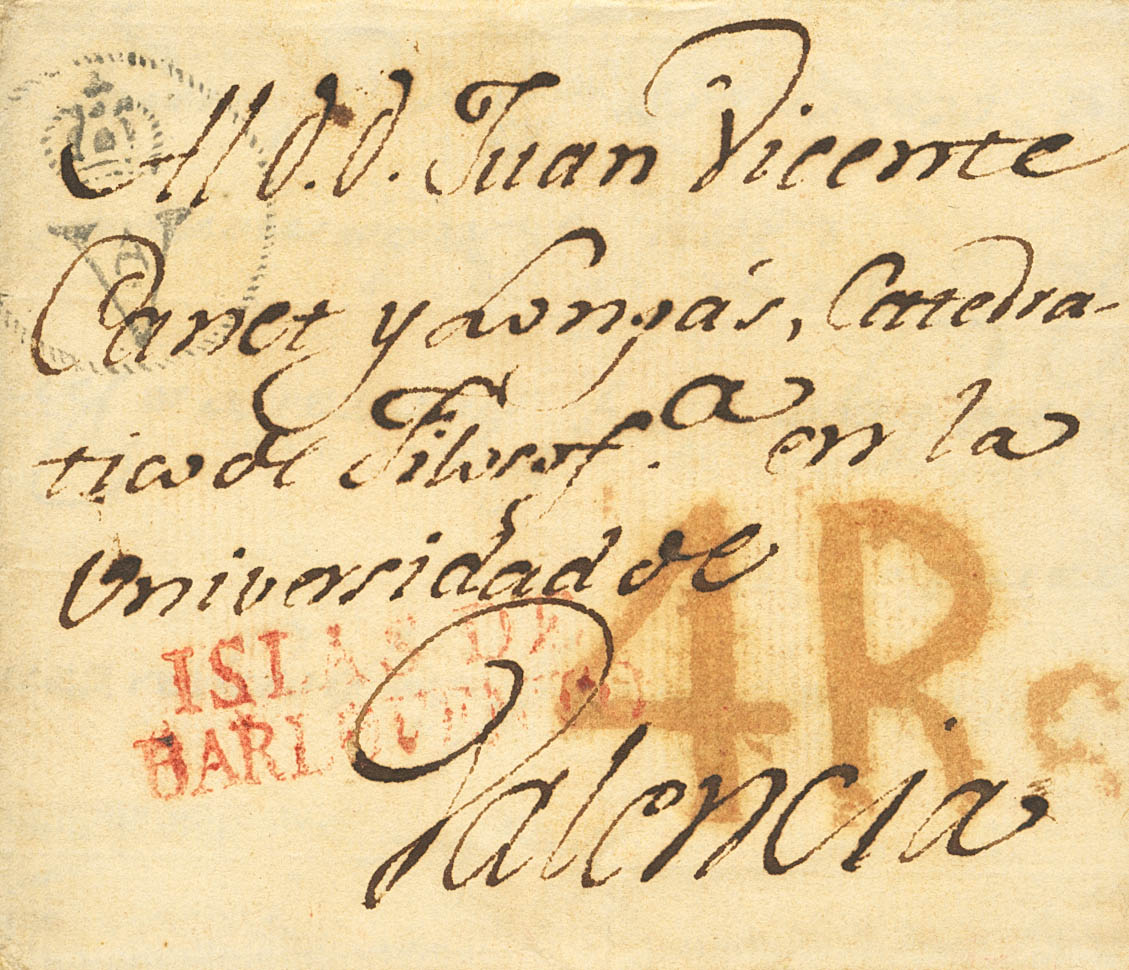 Al d.d. Juan Vicente
Canet y Longás, Catedra-
tico de Filosof.a en la
Universidad de
Valencia
ISLAS DE
BARLOVENTO
4Rs